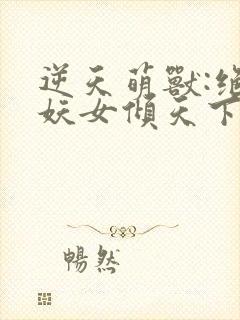 逆天萌獸:絕
妖女傾天下
暢然